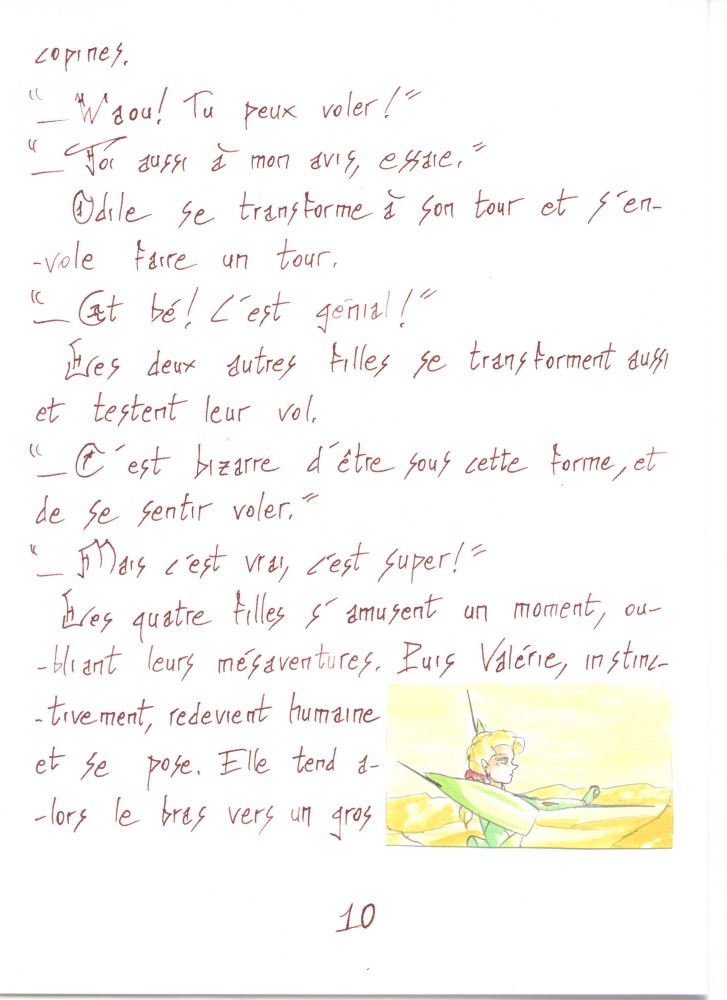 copines.
"_ Waou! Tu peux voler!"
"_ Toi aussi à mon avis, essaie."
Odile se transforme à son tour et s'en-
-vole faire un tour.
"_ Et bé! C'est génial!"
Les deux autres filles se transforment aussi
et testent leur vol.
"_ C'est bizarre d'être sous cette forme, et
de se sentir voler."
"_ Mais c'est vrai, c'est super!"
Les quatre filles s'amusent un moment, ou-
-bliant leurs mésaventures. Puis Valérie, instinc-
-tivement, redevient humaine
et se pose. Elle tend a-
-lors le bras vers un gros
10